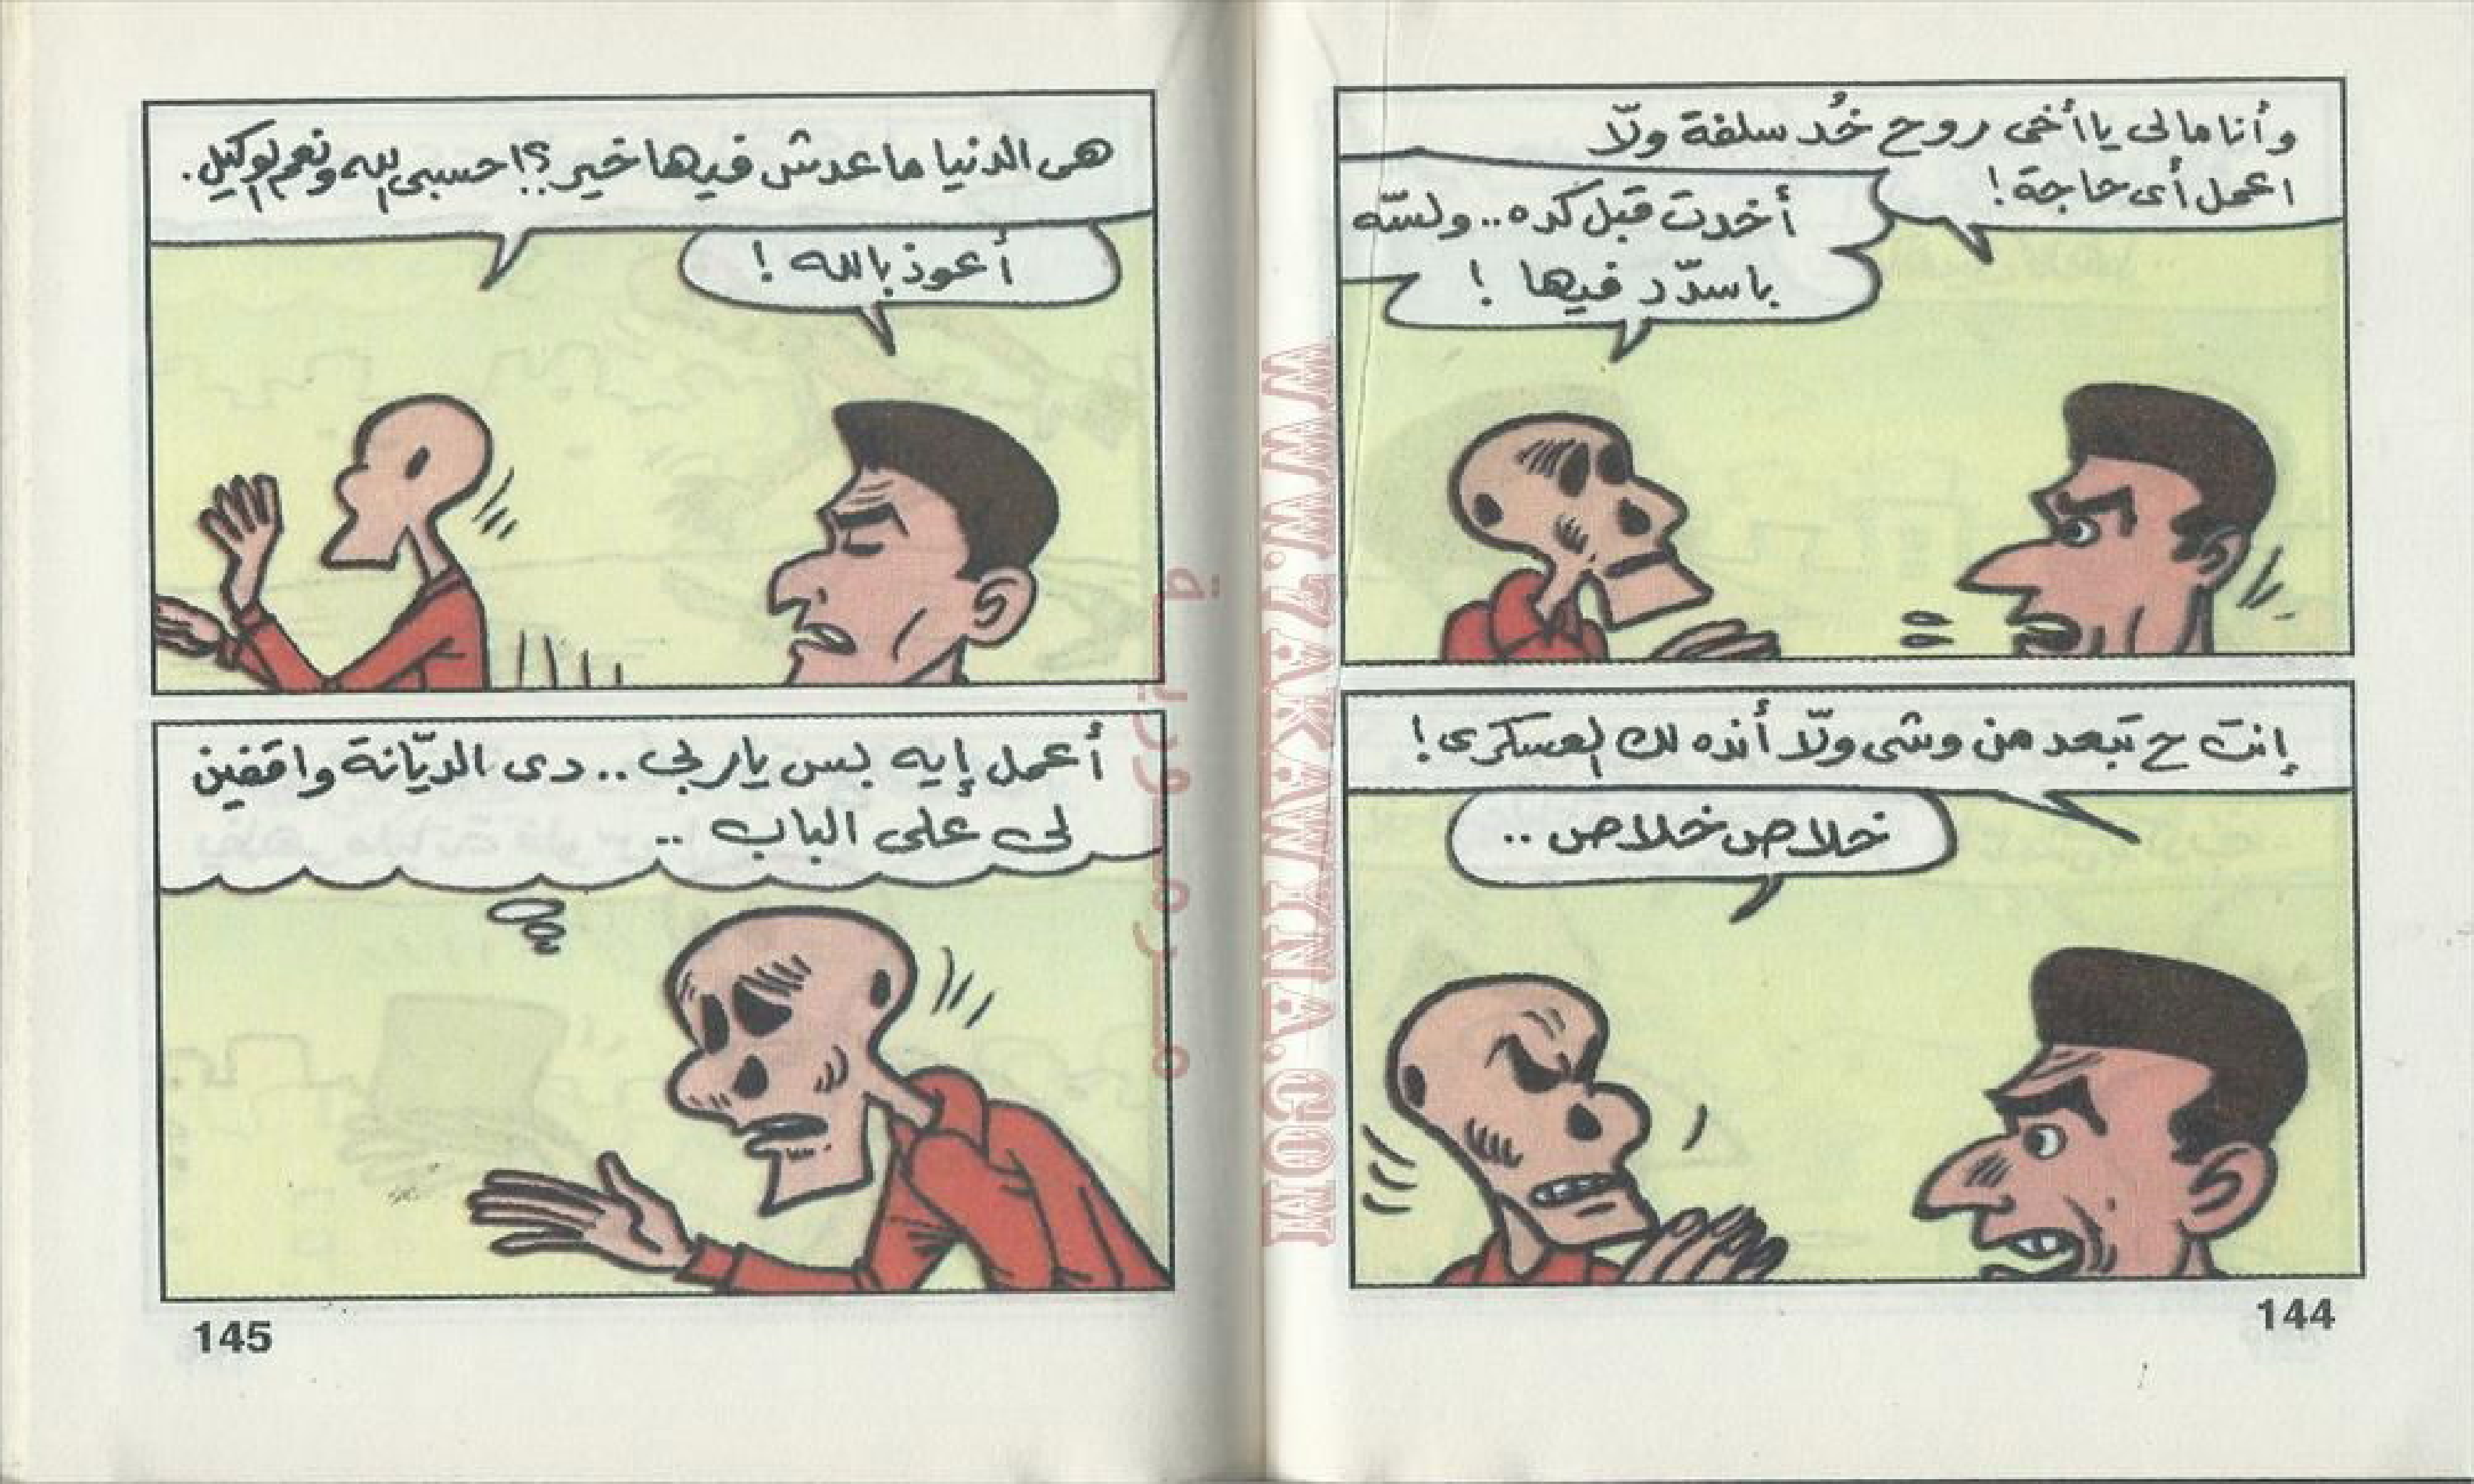 وأنا مالى يا أخى روح خُد سلفة ولّا
اعمل أى حاجة!
أخدت قبل كده.. ولسّه
باسدّد فيها !
إنت ح تبعد من وشى ولّا أنده لك العسكرى!
خلاص خلاص ..
144
هى الدنيا ما عدش فيها خير؟! حسبى الله ونعم الوكيل.
أعوذ بالله !
أعمل إيه بس يا ربى .. دى الديّانة واقفين
لى على الباب ..
145
WWW.7AKAWINA.COM